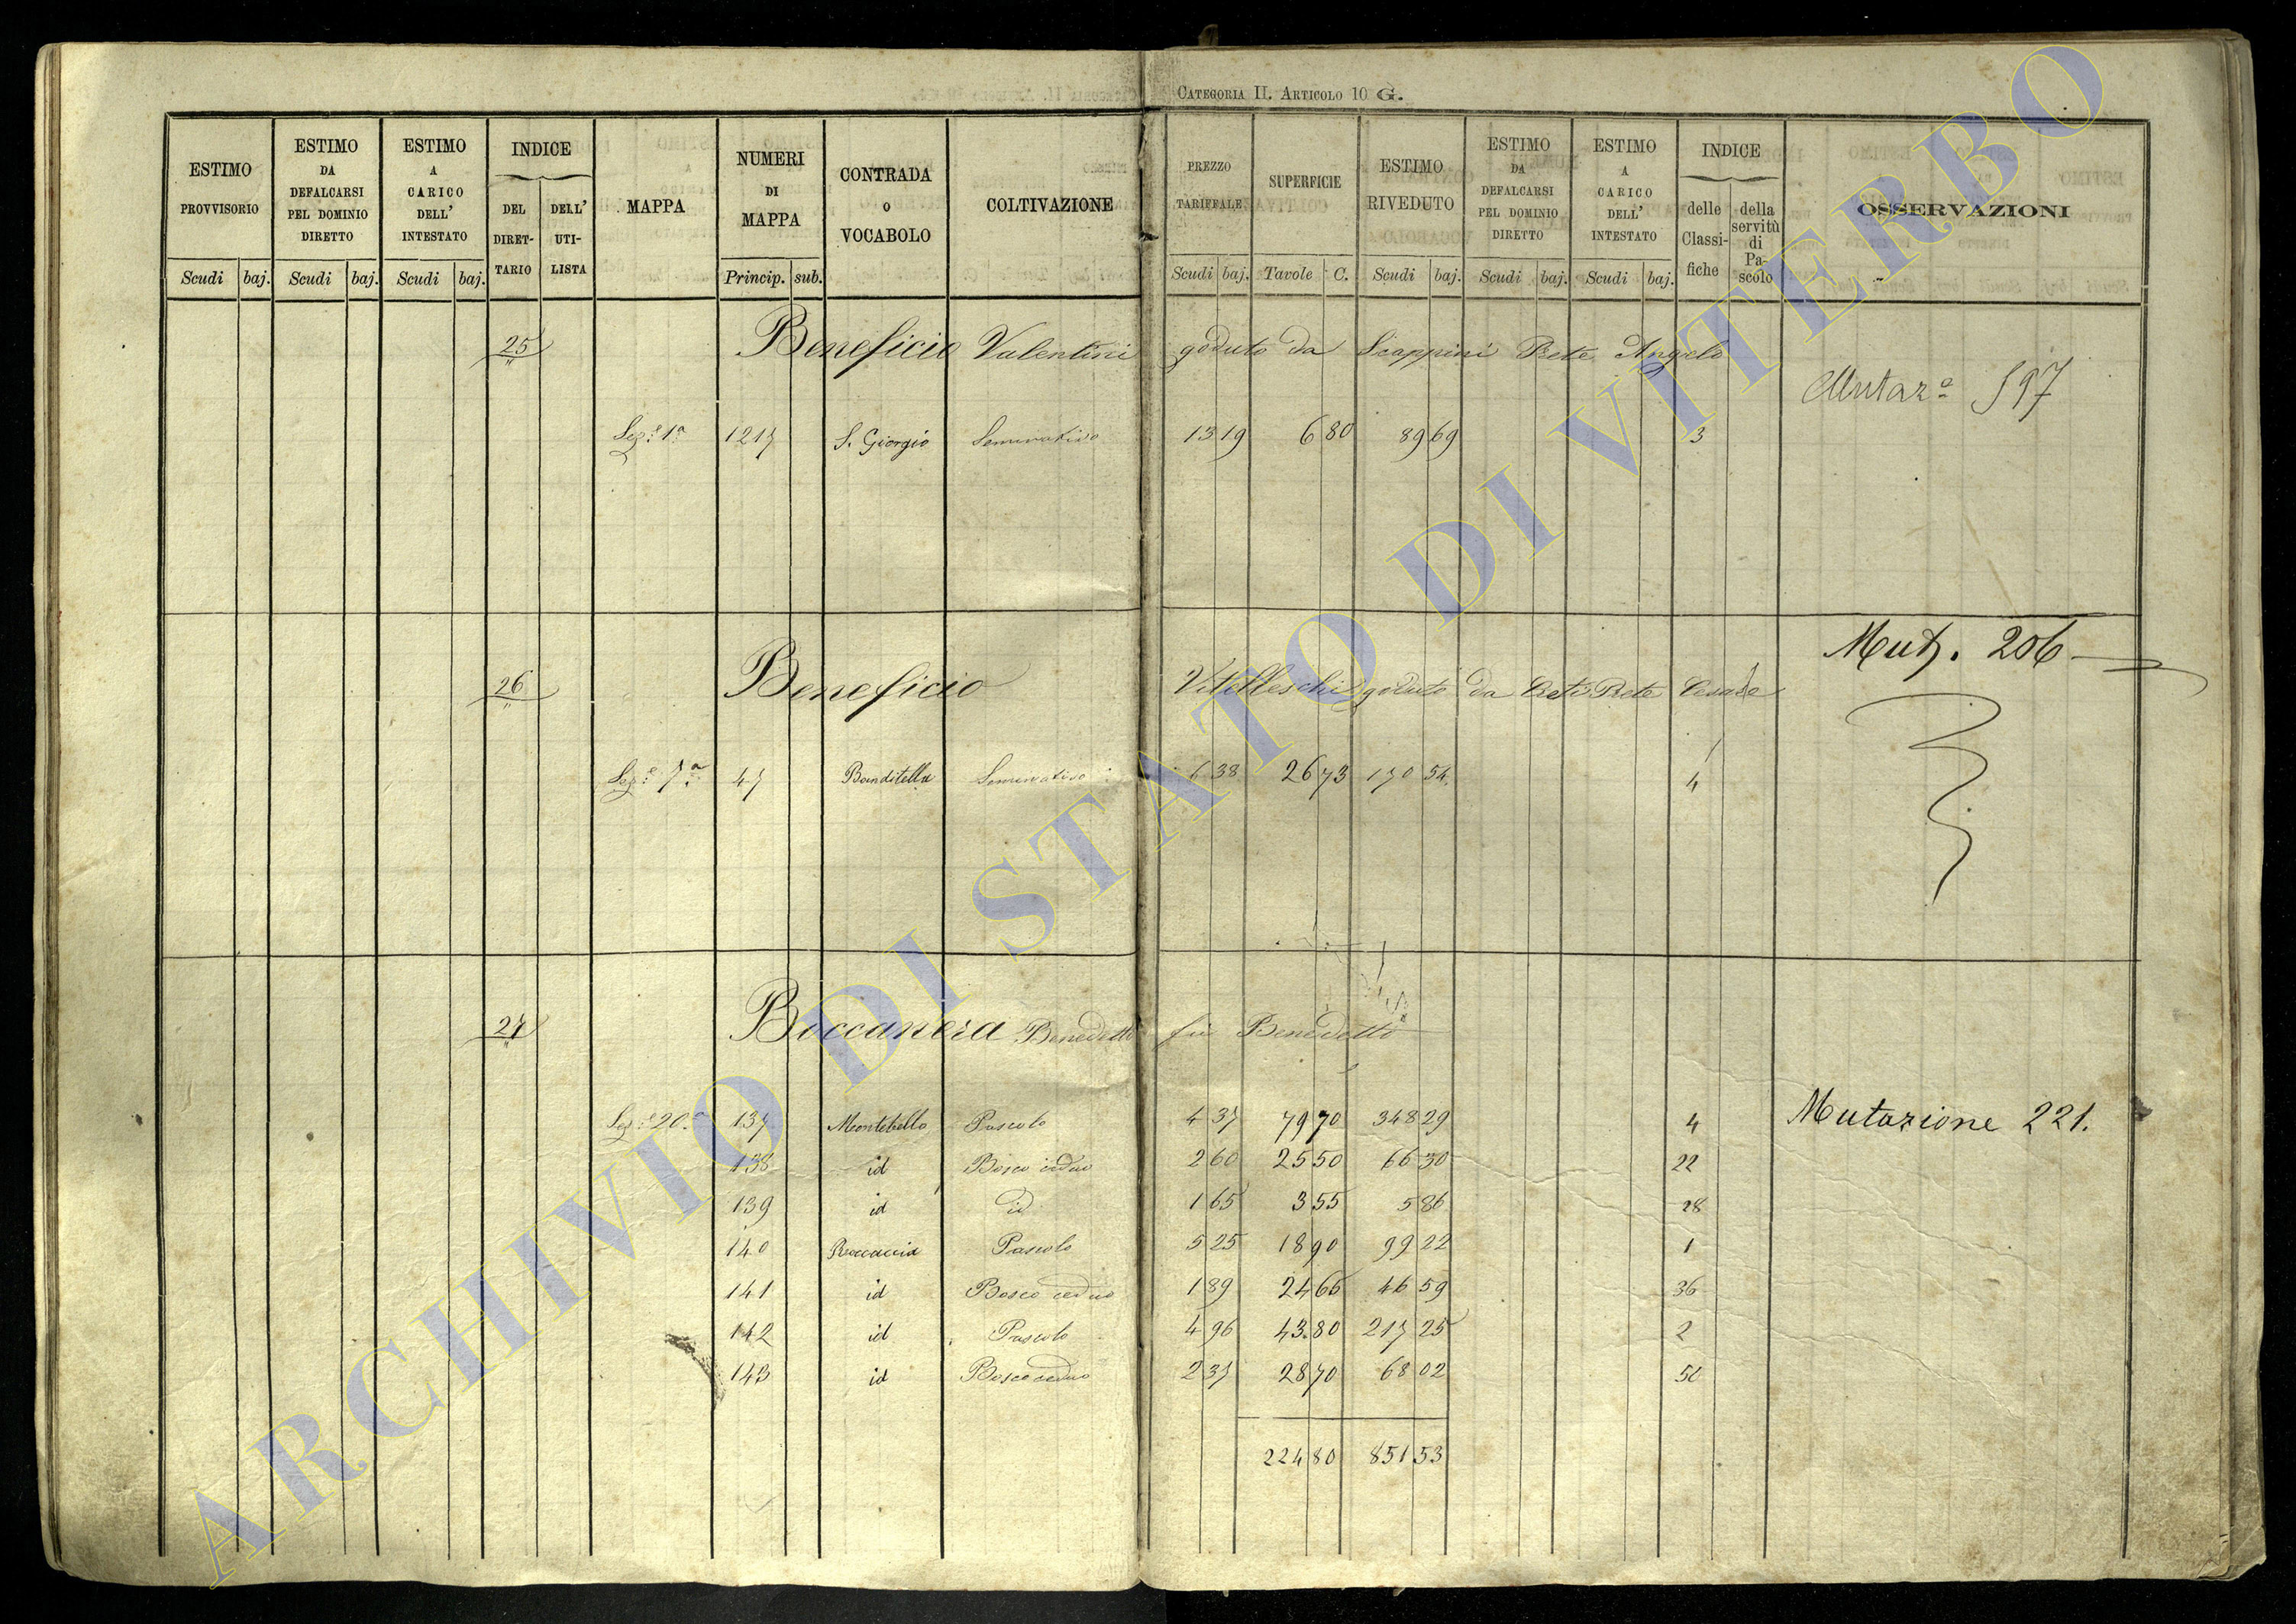 CATEGORIA II. ARTICOLO 10 G.
ESTIMO PROVVISORIO Scudi baj.
ESTIMO DA DEFALCARSI PEL DOMINIO DIRETTO Scudi baj.
ESTIMO A CARICO DELL' INTESTATO Scudi baj.
INDICE DEL DIRET- TARIO DELL' UTI- LISTA
MAPPA
NUMERI DI MAPPA Princip. sub.
CONTRADA o VOCABOLO
COLTIVAZIONE
PREZZO TARIFFALE Scudi baj.
SUPERFICIE Tavole C.
ESTIMO RIVEDUTO Scudi baj.
ESTIMO DA DEFALCARSI PEL DOMINIO DIRETTO Scudi baj.
ESTIMO A CARICO DELL' INTESTATO Scudi baj.
INDICE delle Classi- fiche della servitù di Pa- scolo
OSSERVAZIONI
25 Beneficio Valentini goduto da Scappini Prete Angelo
Mutaz.e 597
Sez.e 1a 1217 S. Giorgio Seminativo 13 19 6 80 89 69 3
Mutz. 206
26 Beneficio Vitelleschi goduto da Prete Cesare
Sez.e 7a 47 Banditella Seminativo 6 38 26 73 170 54 4
27 Boccanera Benedetto fu Benedetto
Sez.e 20a 137 Montebello Pascolo 4 37 79 70 348 29 4 Mutazione 221.
138 id Bosco ceduo 2 60 25 50 66 30 22
139 id id 1 65 3 55 5 86 28
140 Roccaccia Pascolo 5 25 18 90 99 22 1
141 id Bosco ceduo 1 89 24 65 46 59 36
142 id Pascolo 4 96 43 80 217 25 2
143 id Bosco ceduo 2 37 28 70 68 02
224 80 851 53
ARCHIVIO DI STATO DI VITERBO